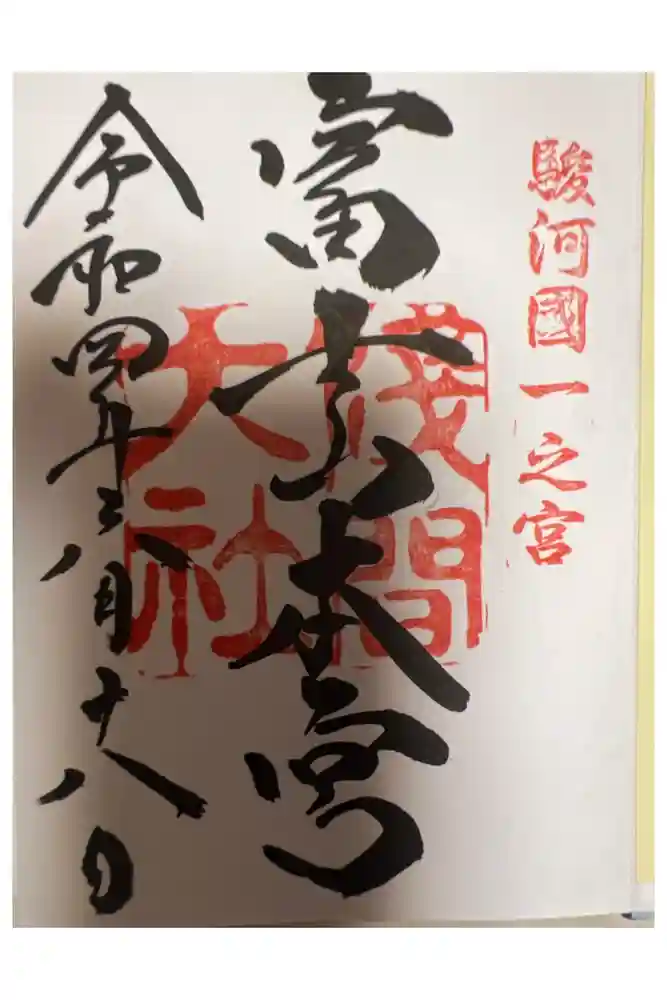 駿河國一之宮
富士山本宮
淺間
大社
令和四年八月十八日